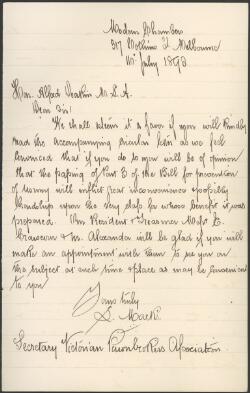 Modern Chambers
317 Collins St Melbourne
11th July 1893
Hon. Alfred Deakin M.L.A.
Dear Sir,
We shall esteem it a favor if you will kindly
read the accompanying circular letter as we feel
convinced that if you do so you will be of opinion
that the passing of Part 3 of the Bill for prevention
of Usury will inflict great inconvenience & possibly
hardships upon the very class for whose benefit it was
prepared. Our President & Treasurer Messrs E.
& Mr. Alexander will be glad if you will
make an appointment with them to see you on
the subject at such time & place as may be convenient
to you
Yours truly
S. Mack
Secretary Victorian Pawnbrokers Association